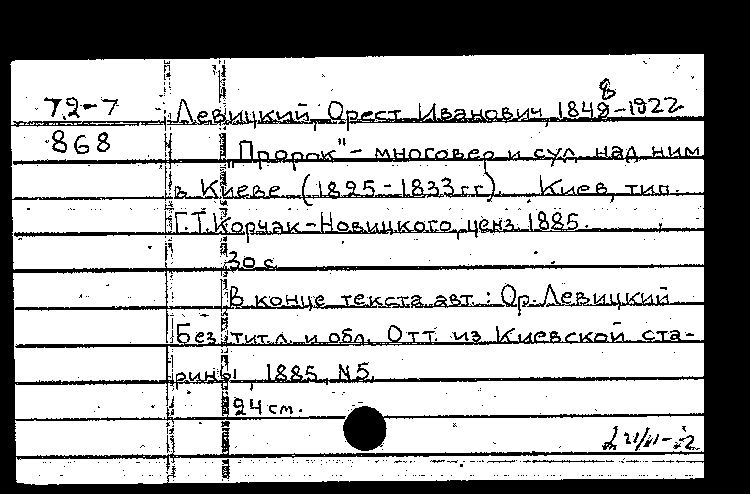 72-7 Левицкий, Орест Иванович, 1848-1922
868 „Пророк"- многовер и суд над ним
в Киеве (1825-1833 гг.). Киев, тип.
Г.Т. Корчак-Новицкого, ценз. 1885.
30 с.
В конце текста авт.: Ор. Левицкий
Без тит.л. и обл. Отт. из Киевской ста-
рины, 1885, N5.
24 см.